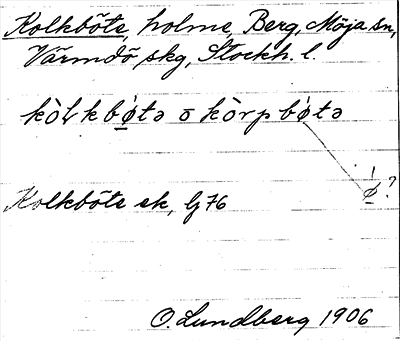 Kolkböte, holme, Berg, Möja sn,
Värmdö skg, Stockh. l.
kòlkbø̀tə o kòrpbø̀tə
ǿ?
Kolkböte sk, Lj 76
O. Lundberg 1906